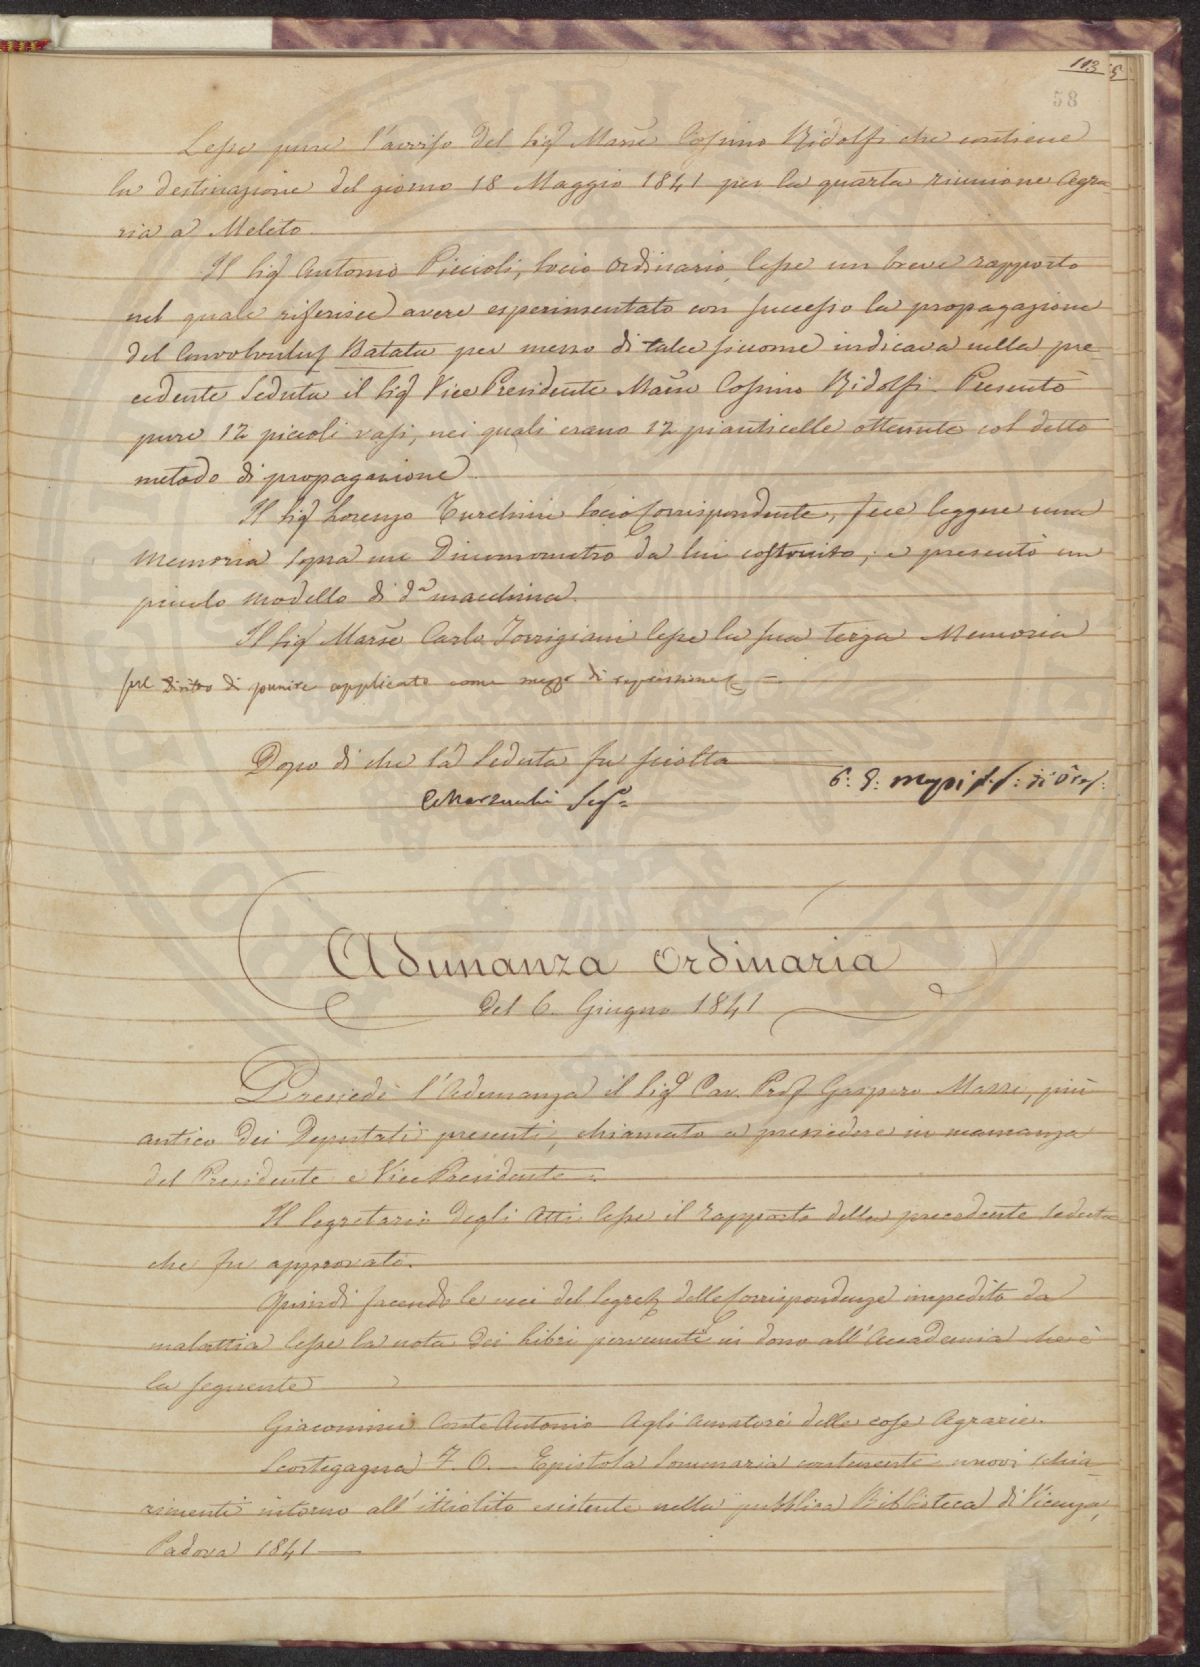 113
58
Lesse pure l'avviso del Sig.r Marse Cosimo Ridolfi che contiene
la destinazione del giorno 18 Maggio 1841 per la quarta riunione Agra-
ria a Meleto.
Il Sig.r Antonio Piccioli, Socio Ordinario, lesse un breve rapporto
nel quale riferisce avere esperimentato con successo la propagazione
del Convolvulus Batata per mezzo di talee siccome indicava nella pre-
cedente Seduta il Sig.r Vice Presidente Marse Cosimo Ridolfi. Presentò
pure 12 piccoli vasi, nei quali erano 12 pianticelle ottenute col detto
metodo di propagazione.
Il Sig.r Lorenzo Turchini Socio Corrispondente, fece leggere una
Memoria sopra un Dinamometro da lui costruito, e presentò un
piccolo modello di d.a macchina.
Il Sig.r Marse Carlo Torrigiani lesse la sua terza Memoria
sul diritto di punire applicato come mezzo di repressione =
Dopo di che la Seduta fu sciolta
C. Marzucchi Seg.o
Adunanza Ordinaria
del 6. Giugno 1841
Presiedè l'Adunanza il Sig.r Cav. Prof. Gaspero Mazzi, più
antico dei Deputati presenti, chiamato a presiedere in mancanza
del Presidente e Vice Presidente.
Il Segretario degli Atti lesse il rapporto della precedente Seduta
che fu approvato.
Quindi facendo le veci del Segret. delle Corrispondenze impedito da
malattia lesse la nota dei Libri pervenuti in dono all'Accademia che è
la seguente
Giacomini Conte Antonio Agli Amatori delle cose Agrarie.
Scortegagna F. O. Epistola Sommaria contenente nuovi schia-
rimenti intorno all'ittiolito esistente nella pubblica Biblioteca di Vicenza,
Padova 1841